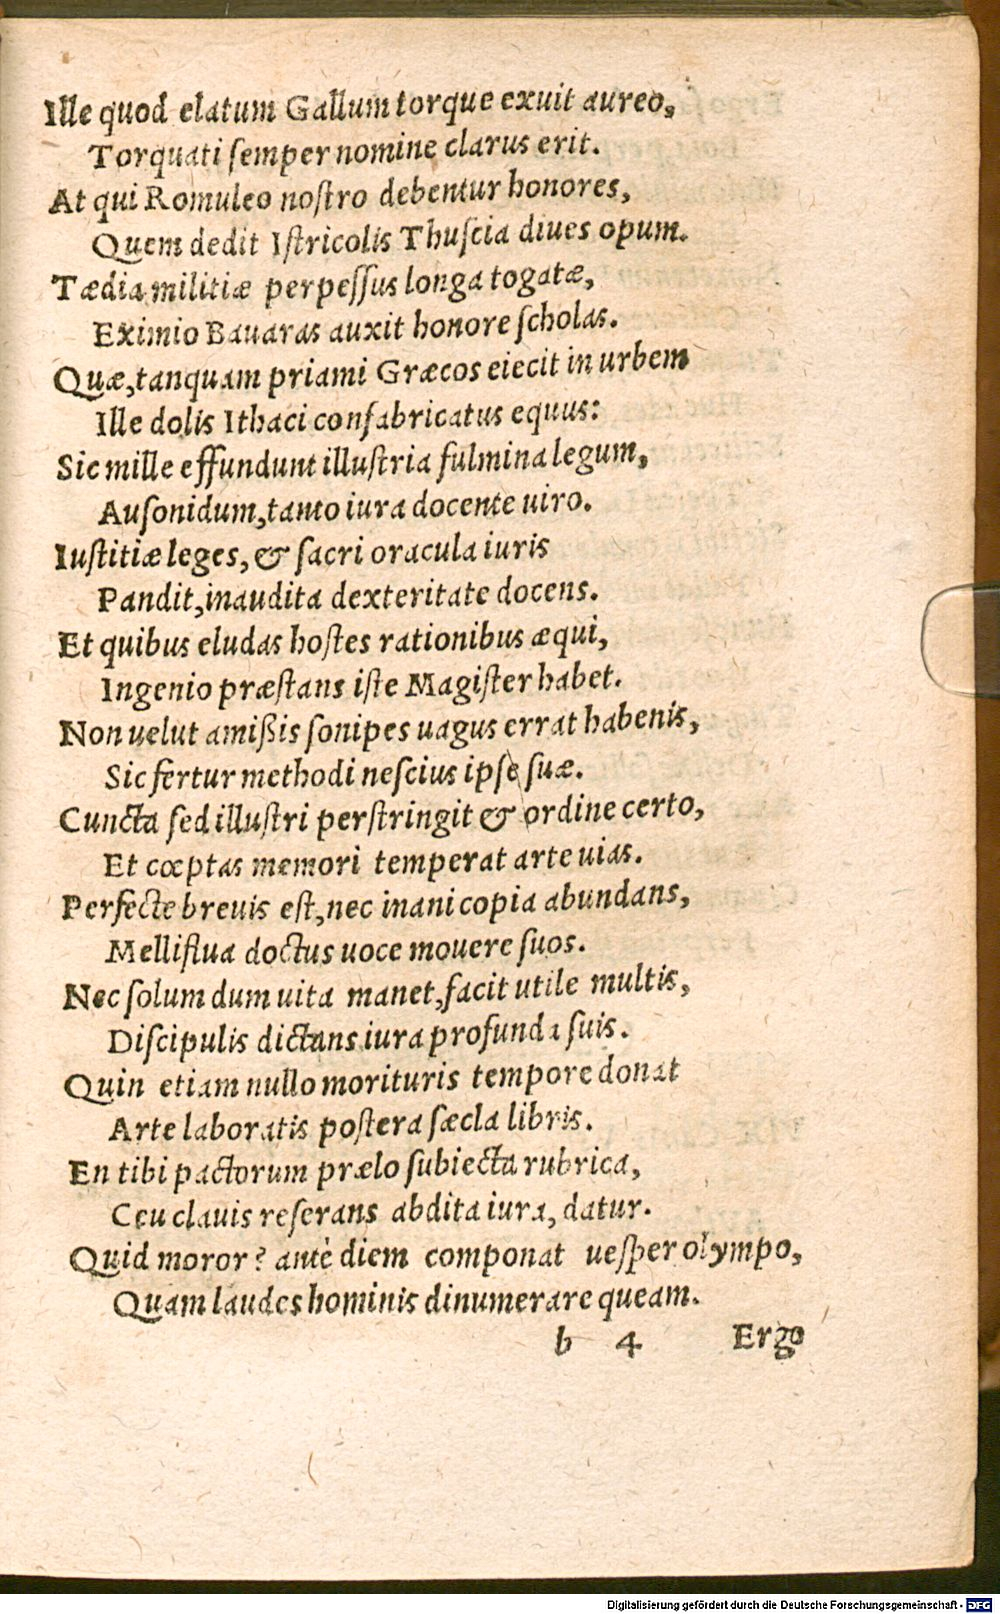 Ille quod elatum Gallum torque exuit aureo,
Torquati ſemper nomine clarus erit.
At qui Romuleo noſtro debentur honores,
Quem dedit Iſtricolis Thuſcia diues opum.
Tædia militiæ perpeſſus longa togatæ,
Eximio Bauaras auxit honore ſcholas.
Quæ, tanquam priami Græcos eiecit in urbem
Ille dolis Ithaci confabricatus equus:
Sic mille effundunt illuſtria fulmina legum,
Auſonidum, tanto iura docente uiro.
Iuſtitiæ leges, & ſacri oracula iuris
Pandit, inaudita dexteritate docens.
Et quibus eludas hoſtes rationibus æqui,
Ingenio præſtans iſte Magiſter habet.
Non uelut amißis ſonipes uagus errat habenis,
Sic fertur methodi neſcius ipſe ſuæ.
Cuncta ſed illuſtri perſtringit & ordine certo,
Et cœptas memori temperat arte uias.
Perfecte breuis eſt, nec inani copia abundans,
Melliflua doctus uoce mouere ſuos.
Nec ſolum dum uita manet, facit utile multis,
Diſcipulis dictans iura profunda ſuis.
Quin etiam nullo morituris tempore donat
Arte laboratis poſtera ſæcla libris.
En tibi pactorum prælo ſubiecta rubrica,
Ceu clauis reſerans abdita iura, datur.
Quid moror? antè diem componat ueſper olympo,
Quam laudes hominis dinumerare queam.
b 4 Ergo
Digitalisierung gefördert durch die Deutsche Forschungsgemeinschaft - DFG